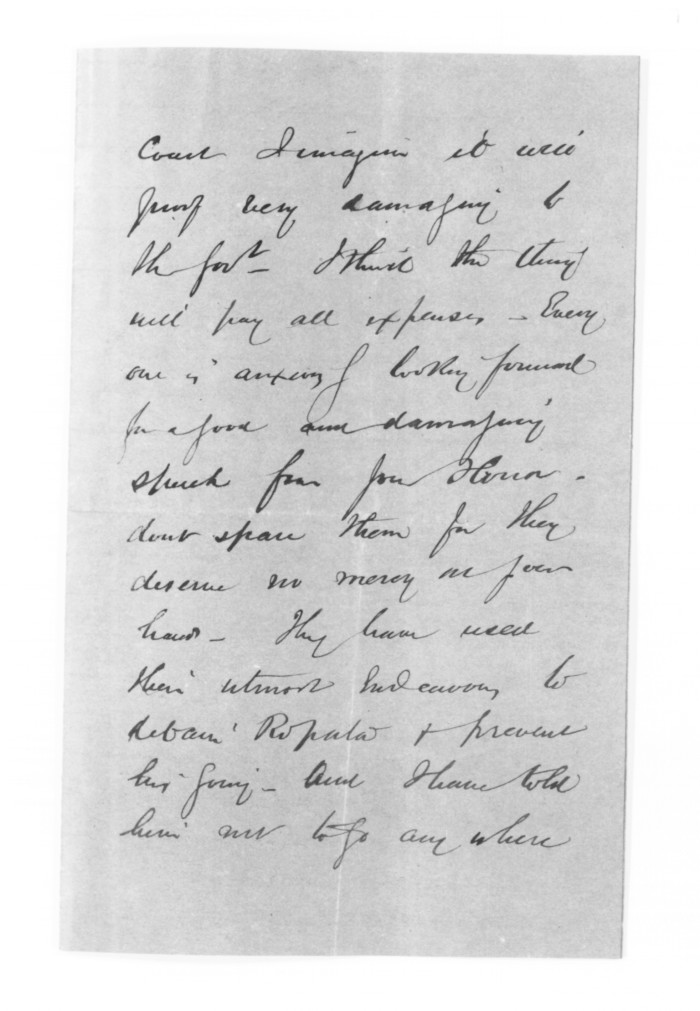 Court I imagin it will
proof very damaging to
the Govt - I think the thing
will pay all expenses - Every
one is anxiously looking forward
for a good and damaging
speech from your Honor -
dont spare them for they
deserve no mercy at your
hands - They have used
their utmost Endeavours to
detain Ropata & prevent
his going - And I have told
him not to go any where